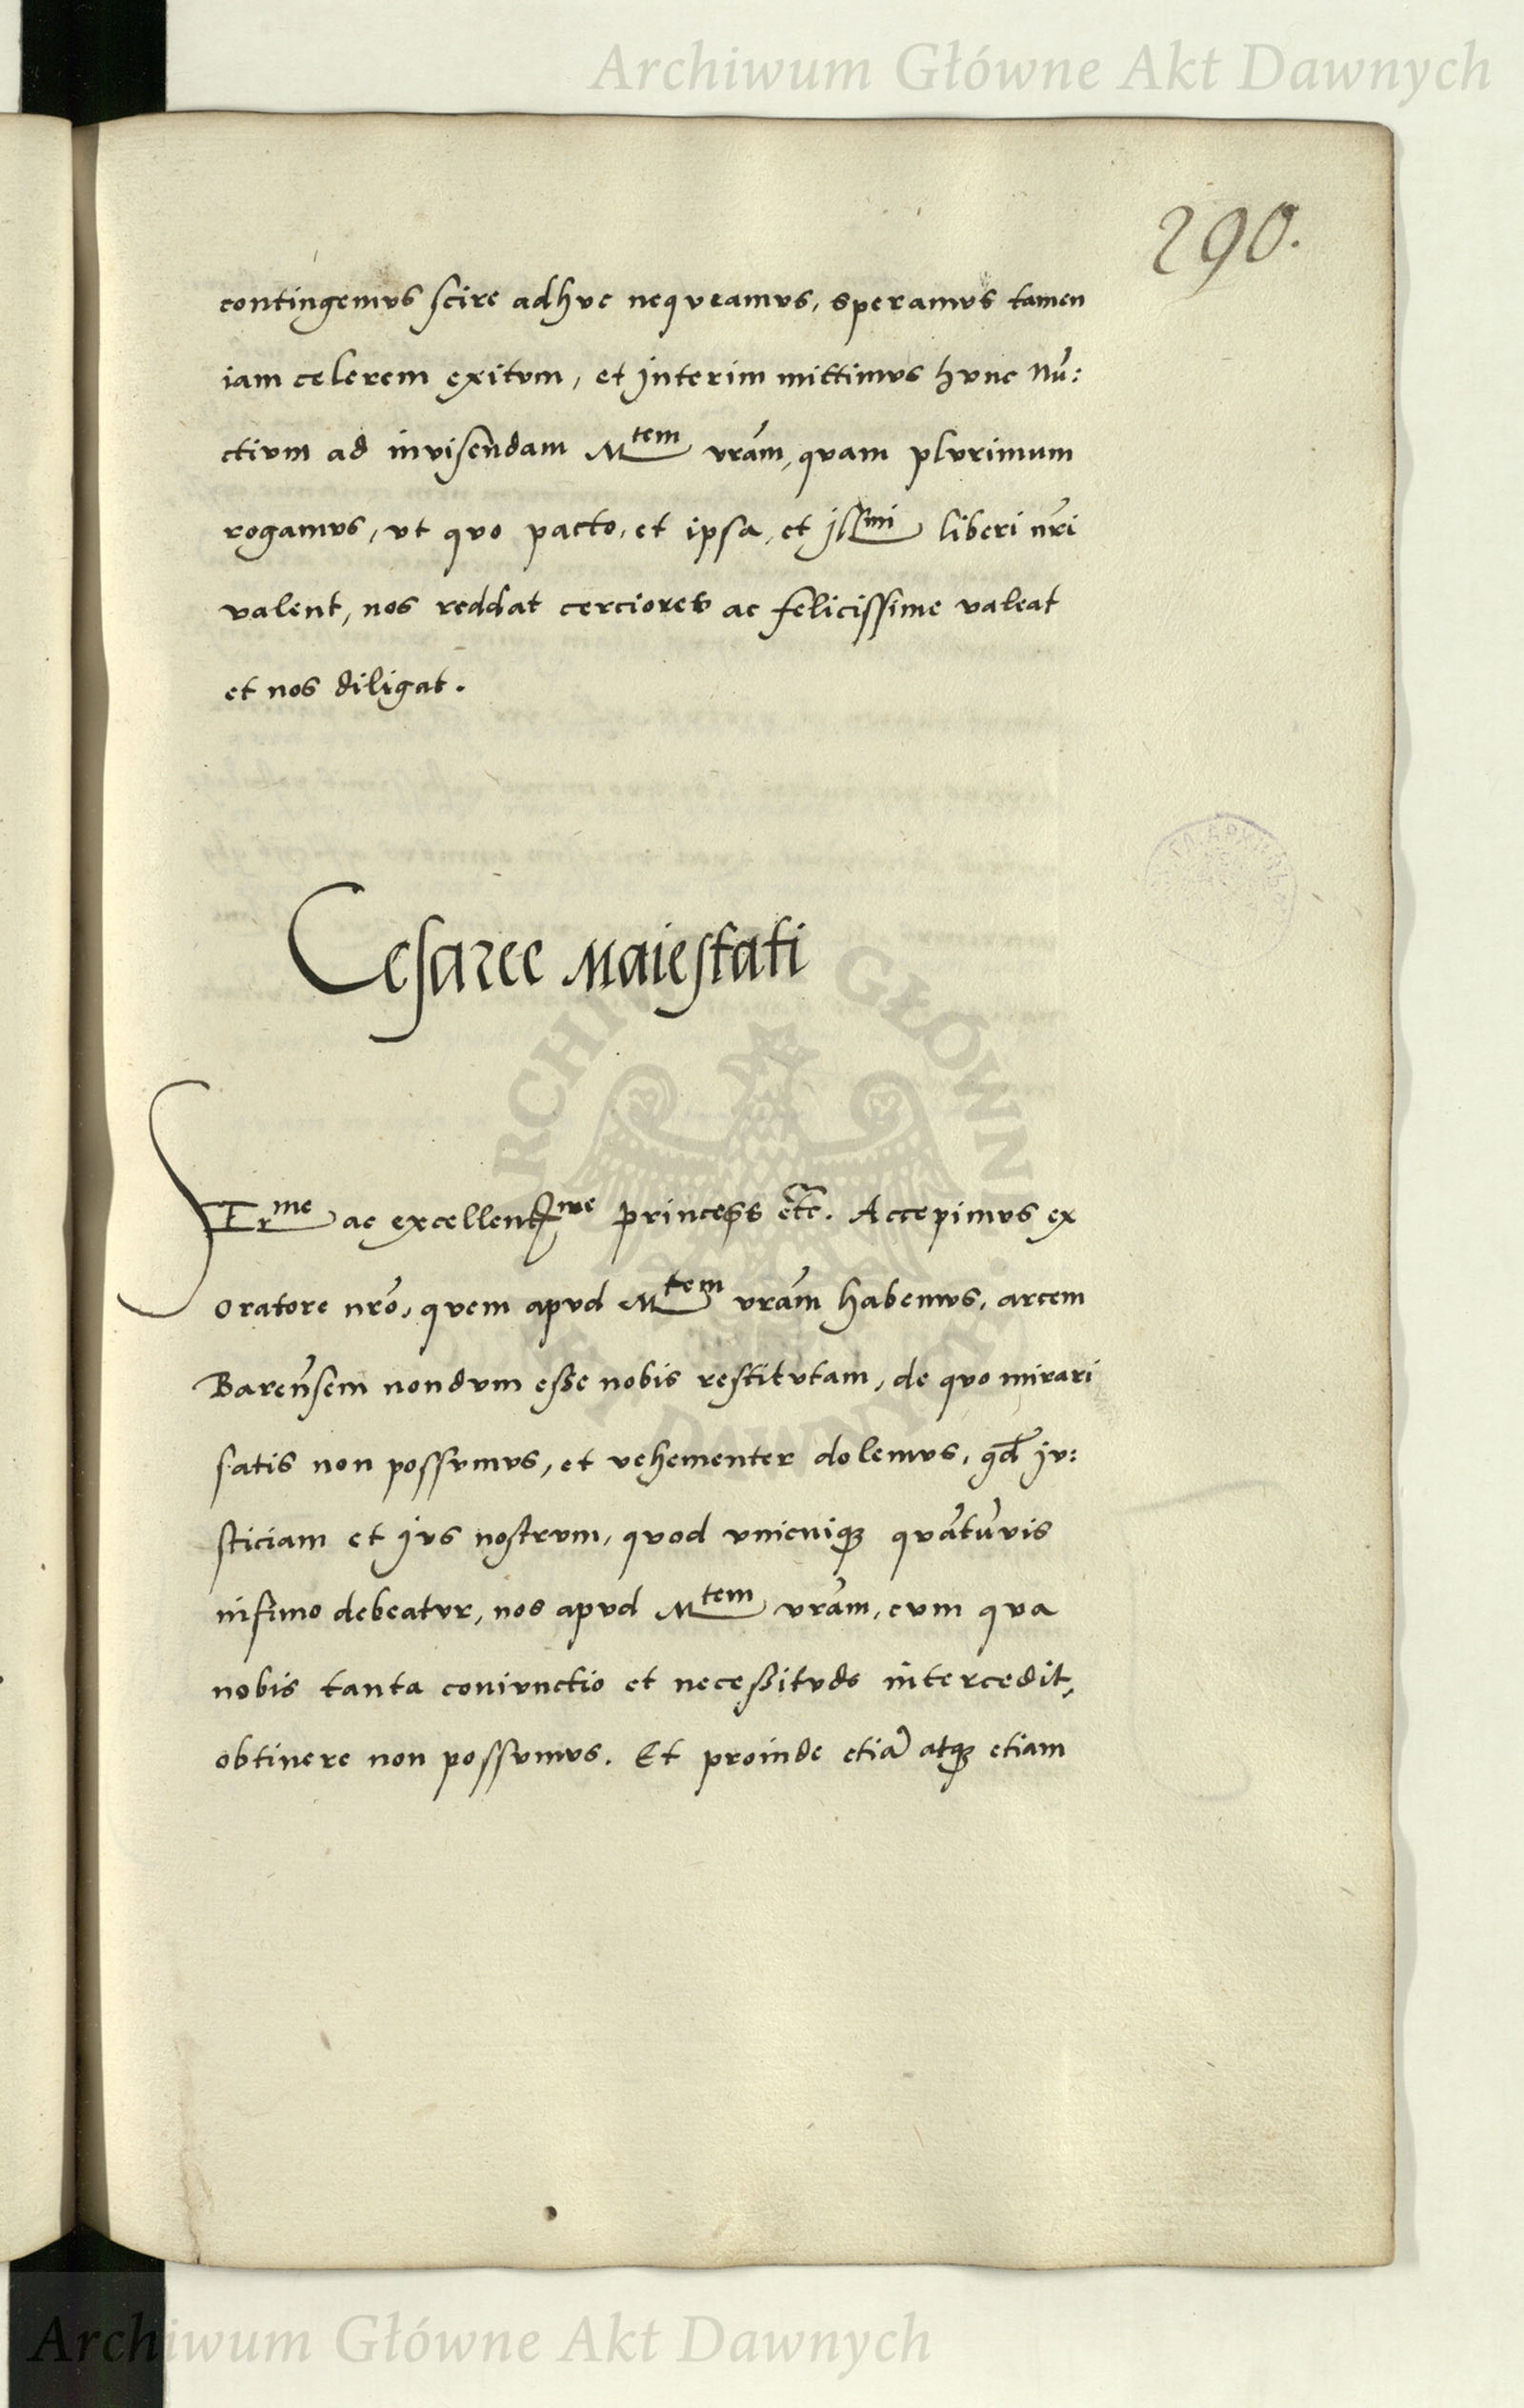 Archiwum Główne Akt Dawnych
290.
contingemus scire adhuc nequeamus, speramus tamen
iam celerem exitum, et interim mittimus hunc Nū:
ctium ad invisendam M^tem vrām, quam plurimum
rogamus, ut quo pacto, et ipsa, et Ill^mi liberi nr̄i
valent, nos reddat cerciores ac felicissime valeat
et nos diligat.
Cesaree Maiestati
Ser^me ac excellent^me princeps etc. Accepimus ex
Oratore nrō, quem apud M^tem vrām habemus, arcem
Barēnsem nondum esse nobis restitutam, de quo mirari
satis non possumus, et vehementer dolemus, qd̄ iu:
sticiam et ius nostrum, quod unicuiq; quātūvis
infimo debeatur, nos apud M^tem vrām, cum qua
nobis tanta coniunctio et necessitudo intercedit,
obtinere non possumus. Et proinde etiā atq; etiam
Archiwum Główne Akt Dawnych